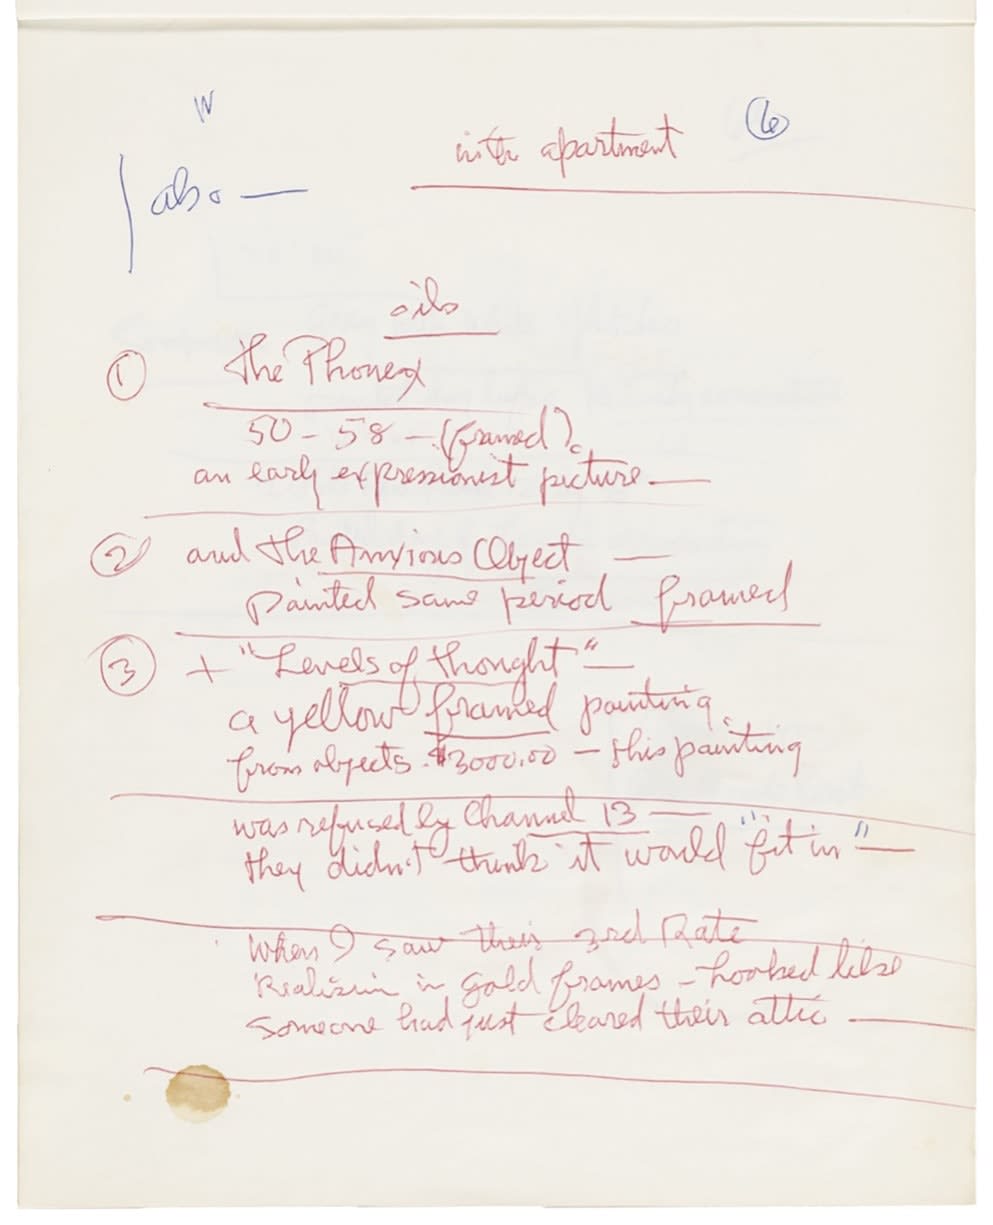 W
with apartment
6
also —
oils
1 the Phonex
50 - 58 - (framed).
an early expressionist picture —
2 and the Anxious Object —
painted same period framed
3 + "Levels of thought" —
a yellow framed painting
from objects. $3000.00 — this painting
was refused by Channel 13 —
they didn't think it would "fit in" —
When I saw their 3rd Rate
Realism in gold frames - looked like
someone had just cleared their attic —